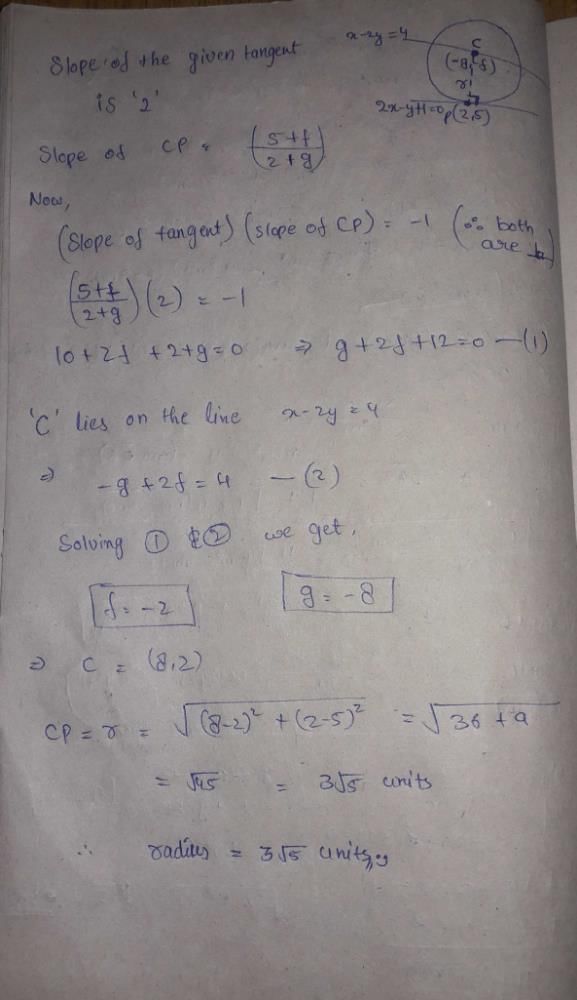 x-2y=4
C
(-g,-f)
r
2x-y+1=0 P(2,5)
Slope of the given tangent
is '2'
Slope of CP = (5+f/2+g)
Now,
(Slope of tangent) (slope of CP) = -1 (∵ both are ⊥)
(5+f/2+g) (2) = -1
10+2f+2+g=0 ⇒ g+2f+12=0 —(1)
'C' lies on the line x-2y=4
⇒ -g+2f=4 —(2)
Solving ① & ② we get,
f=-2 g=-8
⇒ C = (8,2)
CP = r = √(8-2)² + (2-5)² = √36+9
= √45 = 3√5 units
∴ radius = 3√5 units,,